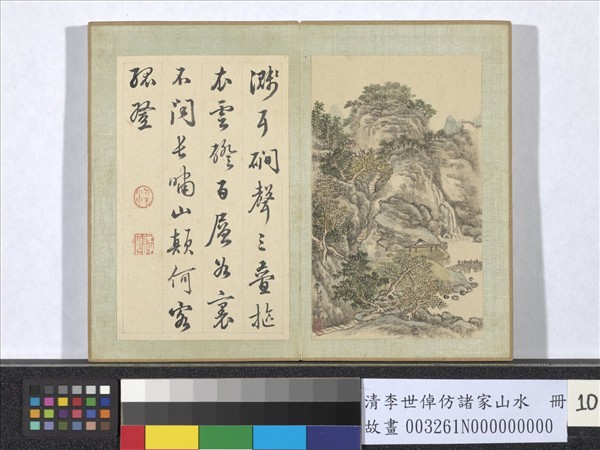 濺耳磵聲三疊摳
衣雲磴百層谷裏
不聞長嘯山顛何處
孫登
清李世倬仿諸家山水 冊
故畫 003261N000000000
10